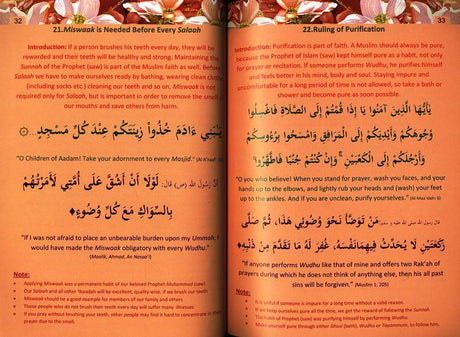 32
21.Miswaak is Needed Before Every Salaah
Introduction: If a person brushes his teeth every day, they will be
rewarded and their teeth will be healthy and strong. Maintaining the
Sunnah of the Prophet (saw) is part of the Muslim faith as well. Before
Salaah we have to make ourselves ready by bathing, wearing clean clothes
(including socks etc.) cleaning our teeth and so on. Miswaak is not
required only for Salaah, but is important in order to remove the smell of
our mouths and save others from harm.
يَـٰبَنِيٓ ءَادَمَ خُذُواْ زِينَتَكُمْ عِندَ كُلِّ مَسْجِدٍ
O Children of Aadam! Take your adornment to every Masjid.
أَنَّ رَسُولَ اللَّهِ (ص) قَالَ: لَوْلَا أَنْ أَشُقَّ عَلَى أُمَّتِي لَأَمَرْتُهُمْ
بِالسِّوَاكِ مَعَ كُلِّ وُضُوءٍ
"If I was not afraid to place an unbearable burden upon my Ummah, I
would have made the Miswaak obligatory with every Wudhu."
(Maalik, Ahmad, An Nasaa'i)
Note:
Applying Miswaak was a permanent habit of our beloved Prophet Muhammed (saw)
Our Salaah and all other 'Ibaadah will be excellent, quality wise, if we brush our teeth
Miswaak should be a good example for members of our family and others
Those people who do not brush their teeth every day may suffer many illnesses.
If you pray without brushing your teeth, other people may find it hard to concentrate in their
prayer due to the smell.
33
22.Ruling of Purification
Introduction: Purification is part of faith. A Muslim should always be pure,
because the Prophet of Islam (saw) kept himself pure as a habit, not only
for prayer or recitation. If someone performs Wudhu, he purifies himself
and feels better in his mind, body and soul. Staying impure and
uncomfortable for a long period of time is not allowed, so take a bath or
shower and become pure as soon as possible.
يَٰٓأَيُّهَا الَّذِينَ آمَنُوا إِذَا قُمْتُمْ إِلَى الصَّلَاةِ فَاغْسِلُوا
وُجُوهَكُمْ وَأَيْدِيَكُمْ إِلَى الْمَرَافِقِ وَامْسَحُوا بِرُءُوسِكُمْ
وَأَرْجُلَكُمْ إِلَى الْكَعْبَيْنِ ۚ وَإِن كُنتُمْ جُنُبًا فَاطَّهَّرُوا
"O you who believe! When you stand for prayer, wash you faces, and your
hands up to the elbows, and lightly rub your heads and (wash) your feet
up to the ankles. And if you are unclean, purify yourselves."
مَنْ تَوَضَّأَ نَحْوَ وُضُوئِي هَذَا، ثُمَّ صَلَّى
رَكْعَتَيْنِ لَا يُحَدِّثُ فِيهِمَا نَفْسَهُ، غُفِرَ لَهُ مَا تَقَدَّمَ مِنْ ذَنْبِهِ
"If anyone performs Wudhu like that of mine and offers two Rak'ah of
prayers during which he does not think of anything else, then his all past
sins will be forgiven."
Note:
It is sinful if someone is impure for a long time without a valid reason.
If we keep ourselves pure all the time, we get the reward of following the Sunnah.
The habit of Prophet (saw) was purifying himself by performing Wudhu.
Make yourself pure through either Ghusl (bath), Wudhu or Tayammum, to follow him.